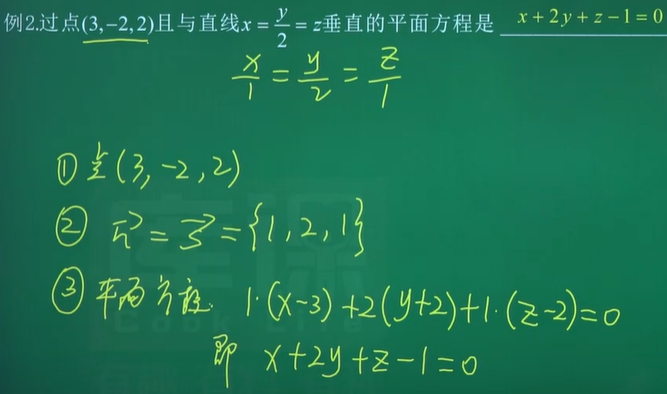 例2.过点(3,-2,2)且与直线x=y/2=z垂直的平面方程是 x+2y+z-1=0
x/1=y/2=z/1
① 点(3,-2,2)
② n⃗=s⃗={1,2,1}
③ 平面方程. 1·(x-3)+2(y+2)+1·(z-2)=0
即 x+2y+z-1=0